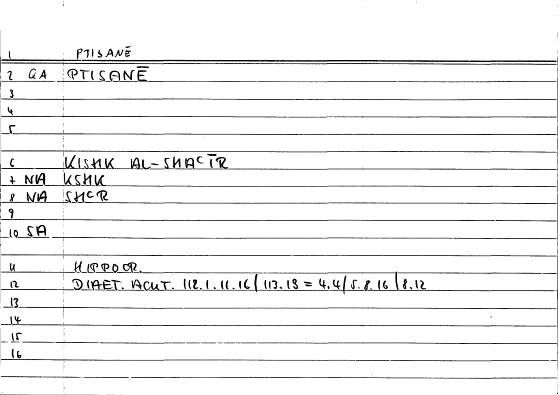 1 PTISANĒ
2 GA PTISANĒ
3
4
5
6 KISHK AL-SHAʿĪR
7 NA KSHK
8 NA SHʿR
9
10 SA
11 HIPPOCR.
12 DIAET. ACUT. 112.1.11.16/113.13 = 4.4/5.8.16/8.12
13
14
15
16